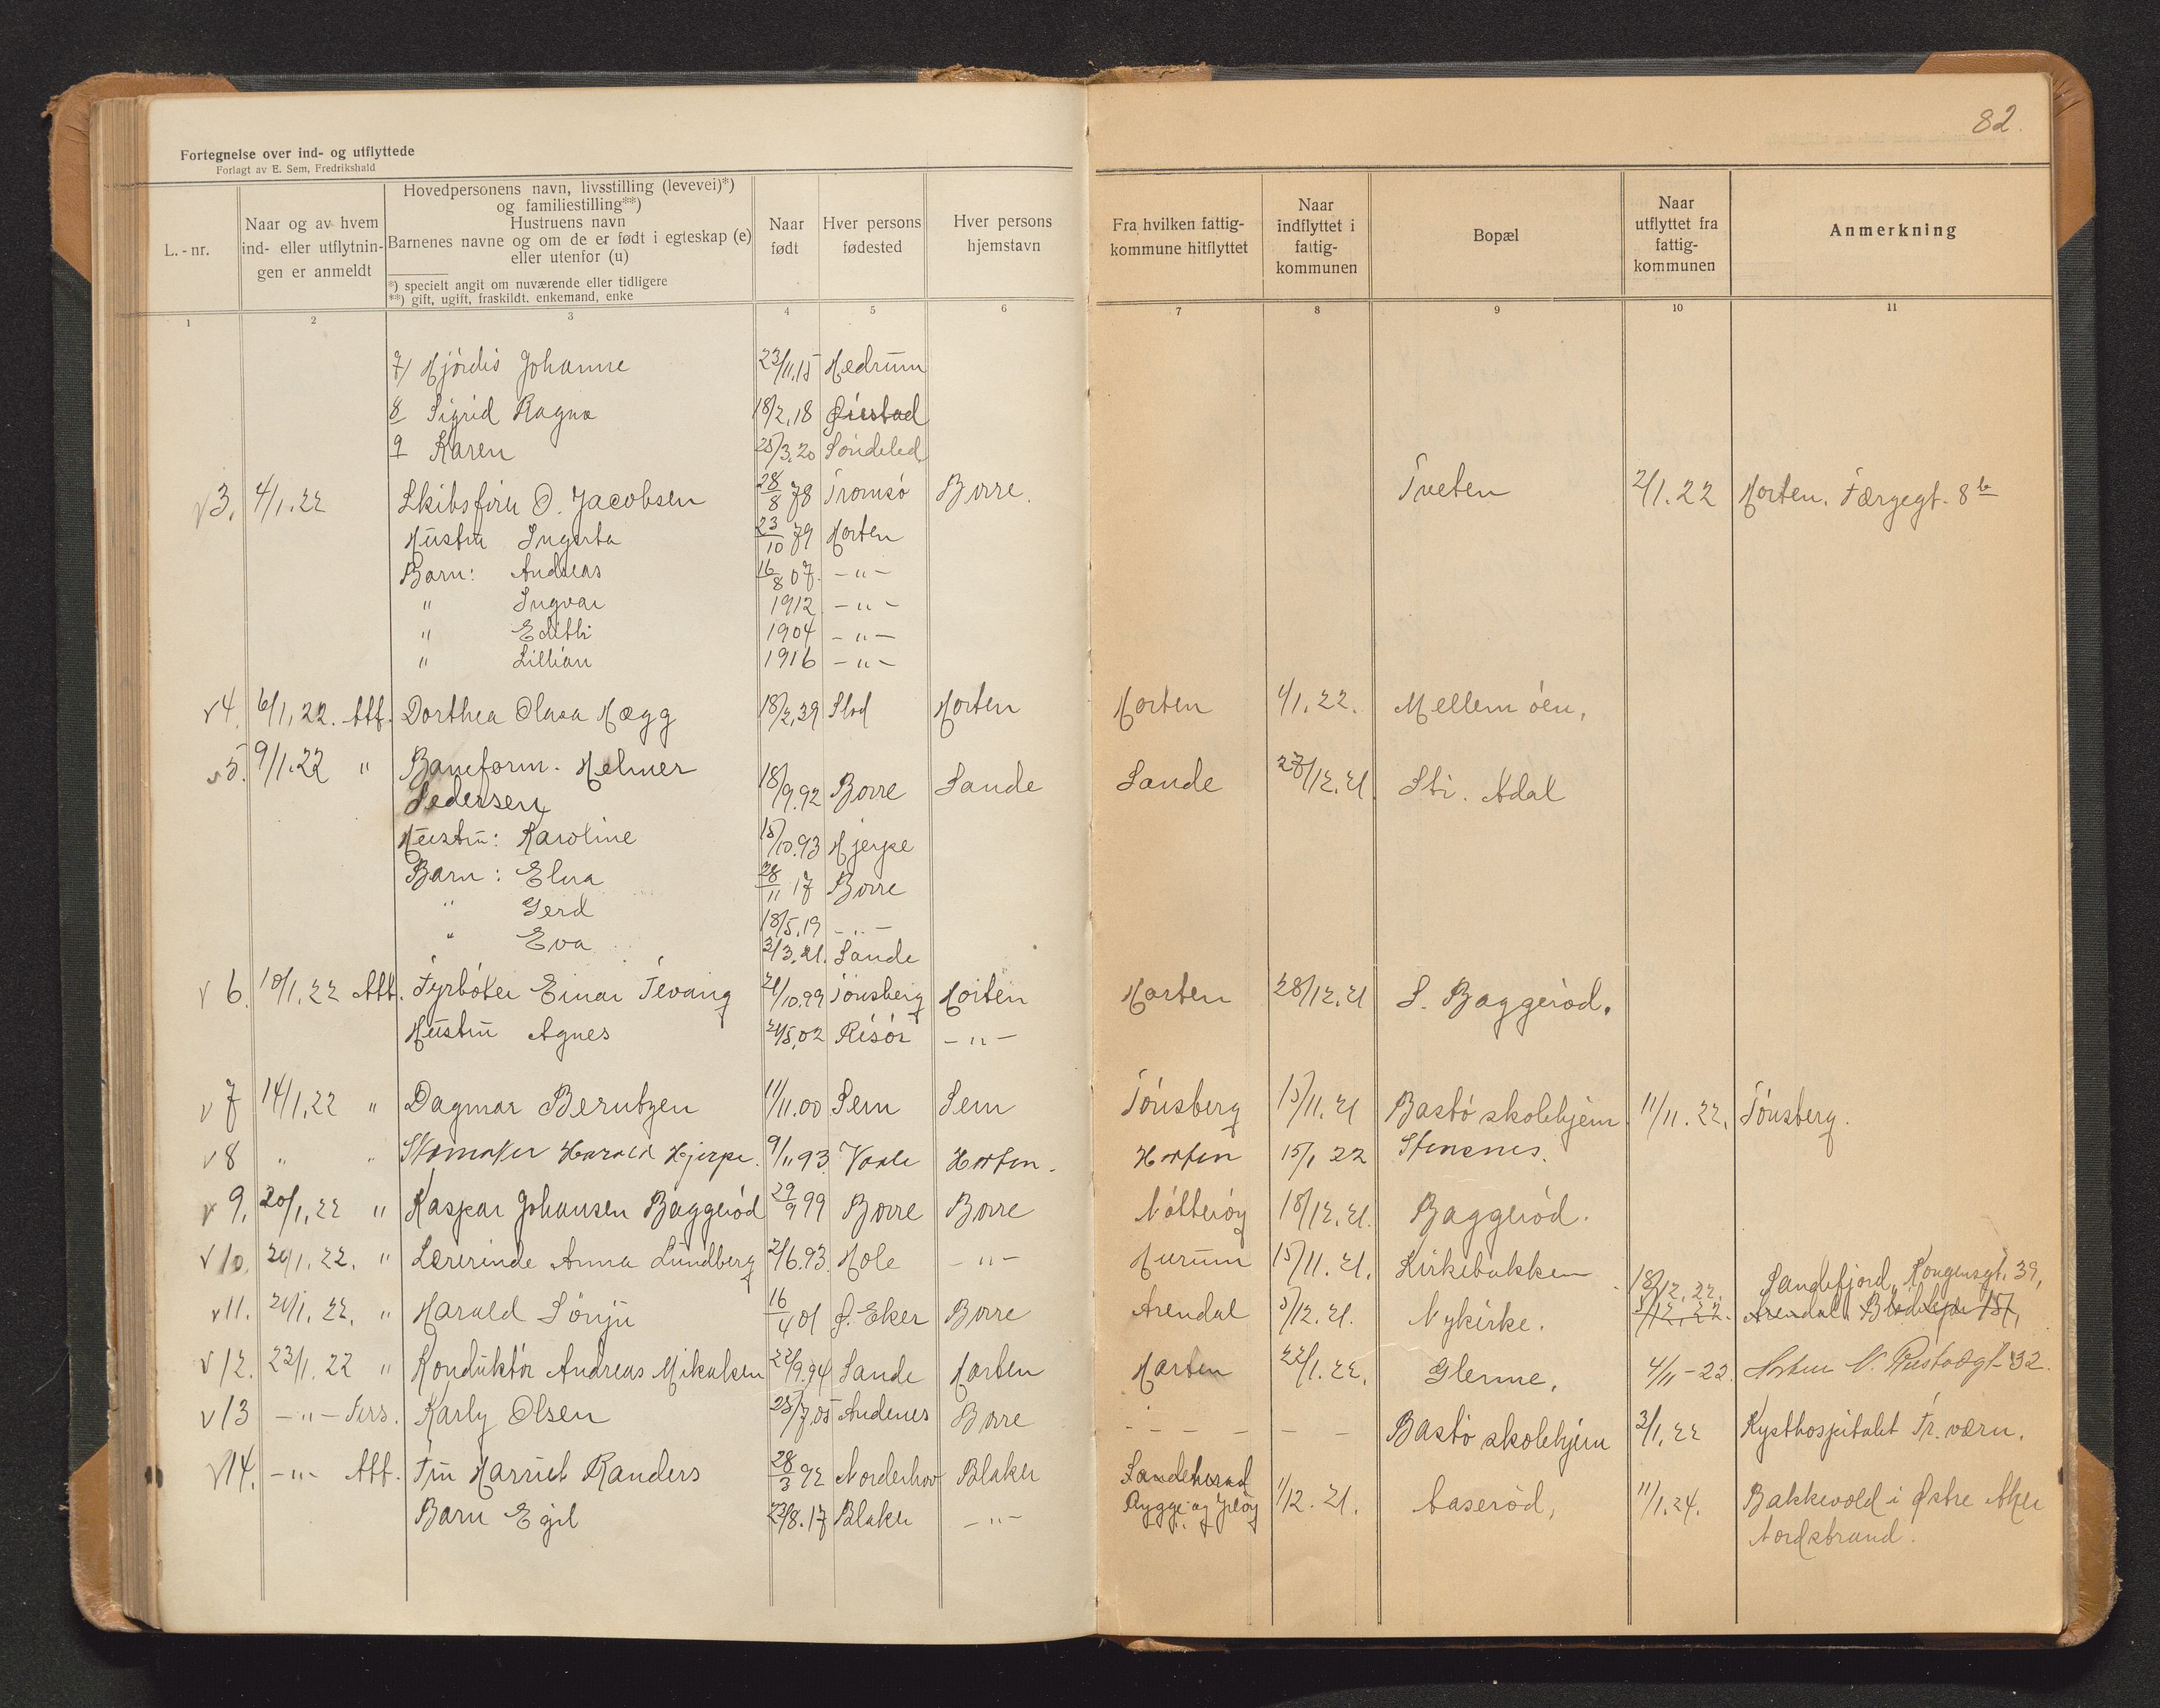 82.
Fortegnelse over ind- og utflyttede
Forlagt av E. Sem, Fredrikshald
L.-nr.
Naar og av hvem ind- eller utflytningen er anmeldt
Hovedpersonens navn, livsstilling (levevei)*)
og familiestilling**)
Hustruens navn
Barnenes navne og om de er født i egteskap (e)
eller utenfor (u)
*) specielt angit om nuværende eller tidligere
**) gift, ugift, fraskildt. enkemand, enke
Naar født
Hver persons fødested
Hver persons hjemstavn
Fra hvilken fattig-kommune hitflyttet
Naar indflyttet i fattig-kommunen
Bopæl
Naar utflyttet fra fattig-kommunen
Anmerkning
1 2 3 4 5 6 7 8 9 10 11
7) Hjördis Johanne 23/11.15 Hedrum
8 Sigrid Ragna 18/2.18 Öiestad
9 Karen 25/3.20 Söndeled
v 3. 4/1.22 Skibsfören O. Jacobsen 28/8 78 Tromsö Borre. Tveten 2/1.22 Horten. Færgegt. 8 b
Hustru Ingerta 23/10 79 Horten
Barn: Andreas 16/8 07. -"-
" Ingvar 1912 -"-
" Edith 1904 -"-
" Lillian 1916 -"-
v 4. 6/1.22. Att. Dorthea Olava Hægg 18/2.39 Horten Horten 4/1.22. Mellemöen,
v 5. 9/1.22 " Baneform. Helmer 18/9.92 Borre Sande Sande 27/12.21. St. Adal
Pedersen
Hustru: Karoline 15/10.93 Hjerpe
Barn: Elna 28/11 17 Borre
" Gerd 18/5.19 -"-
" Eva 2/3.21. Sande
v 6. 10/1.22 Att. Fyrböter Einar Tevang 21/10.99 Tönsberg Horten Horten 28/12.21 S. Baggeröd.
Hustru Agnes 21/5.02 Risör -"-
v 7 14/1.22 " Dagmar Berntzen 11/11.00 Sem Sem Tönsberg 15/11.21 Bastö skolehjem 11/11.22. Tönsberg.
v 8 " " Skomaker Harald Hjerpe. 9/11 93. Vaale Horten. Horten 15/1 22 Stensnes.
v 9. 20/1.22 " Kaspar Johansen Baggeröd 29/9 99 Borre Borre Nötteröy 18/12.21. Baggeröd.
v 10. 20/1.22. " Lærerinde Anna Lundberg 2/6.93. Hole -"- Hurum 15/11.21. Kirkebakken 18/12.22. Sandefjord, Kongensgt. 39,
v 11. 21/1.22. " Harald Sönju 16/4 01 Ö. Eker Borre Arendal 5/12.21. Nykirke. 5/12.22. Arendal
v 12. 23/1.22 " Konduktör Andreas Mikalsen 22/9.94 Sande Horten Horten 22/1.22. Glenne. 4/11-22. Horten N. 32.
v 13 -"- Pers. Karly Olsen 25/7.05 Andenes Borre - - - - - - Bastö skolehjem 3/1.22 Kysthospitalet Fr.værn.
v 14. -"- Att. Fru Harriet Randers 28/3 92 Norderhov Blaker Sandeherad Rygge og Jelöy 1/12.21. Aaseröd, 11/1.24. Bakkevold i Østre Aker
Barn Egil 23/8.17 Blaker -"- Nordstrand.